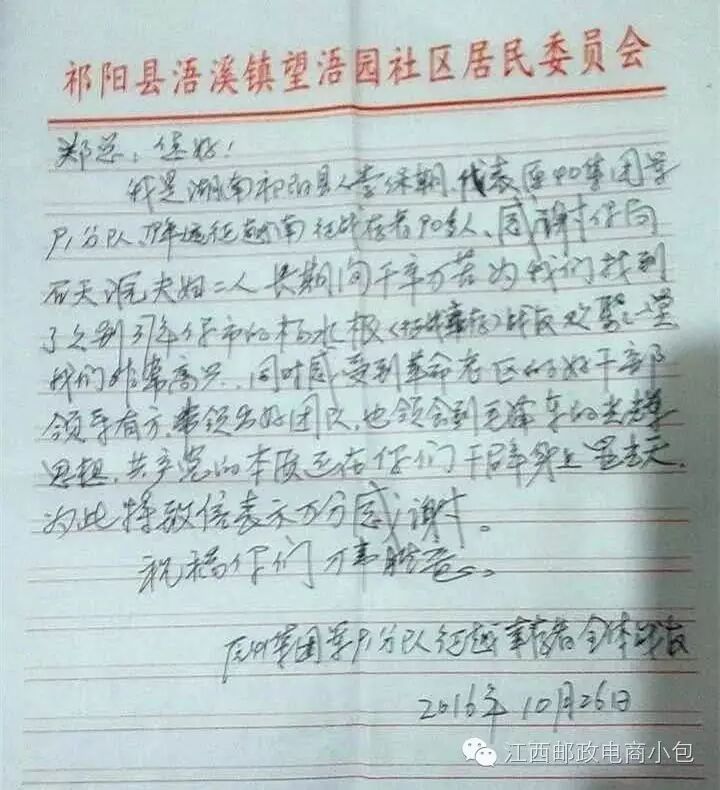 祁阳县浯溪镇望浯园社区居民委员会
郑总，您好！
我是湖南祁阳县人 保朝、代表原 集团
分队、 年远征越南 存者90多人、感谢你局
石天 夫妇二人长期间千辛万苦为我们找到
了久别37年你市的杨水根 战友欢聚一堂
我们非常高兴、同时感受到革命老区的好干部
领导有方、带领出好团队，也领会到毛泽东的光辉
思想，共产党的本质还在你们干群身上 。
为此特致信表示万分感谢。
祝福你们万事胜意。
集团 分队征越幸存者全体战友
2016年10月26日
江西邮政电商小包